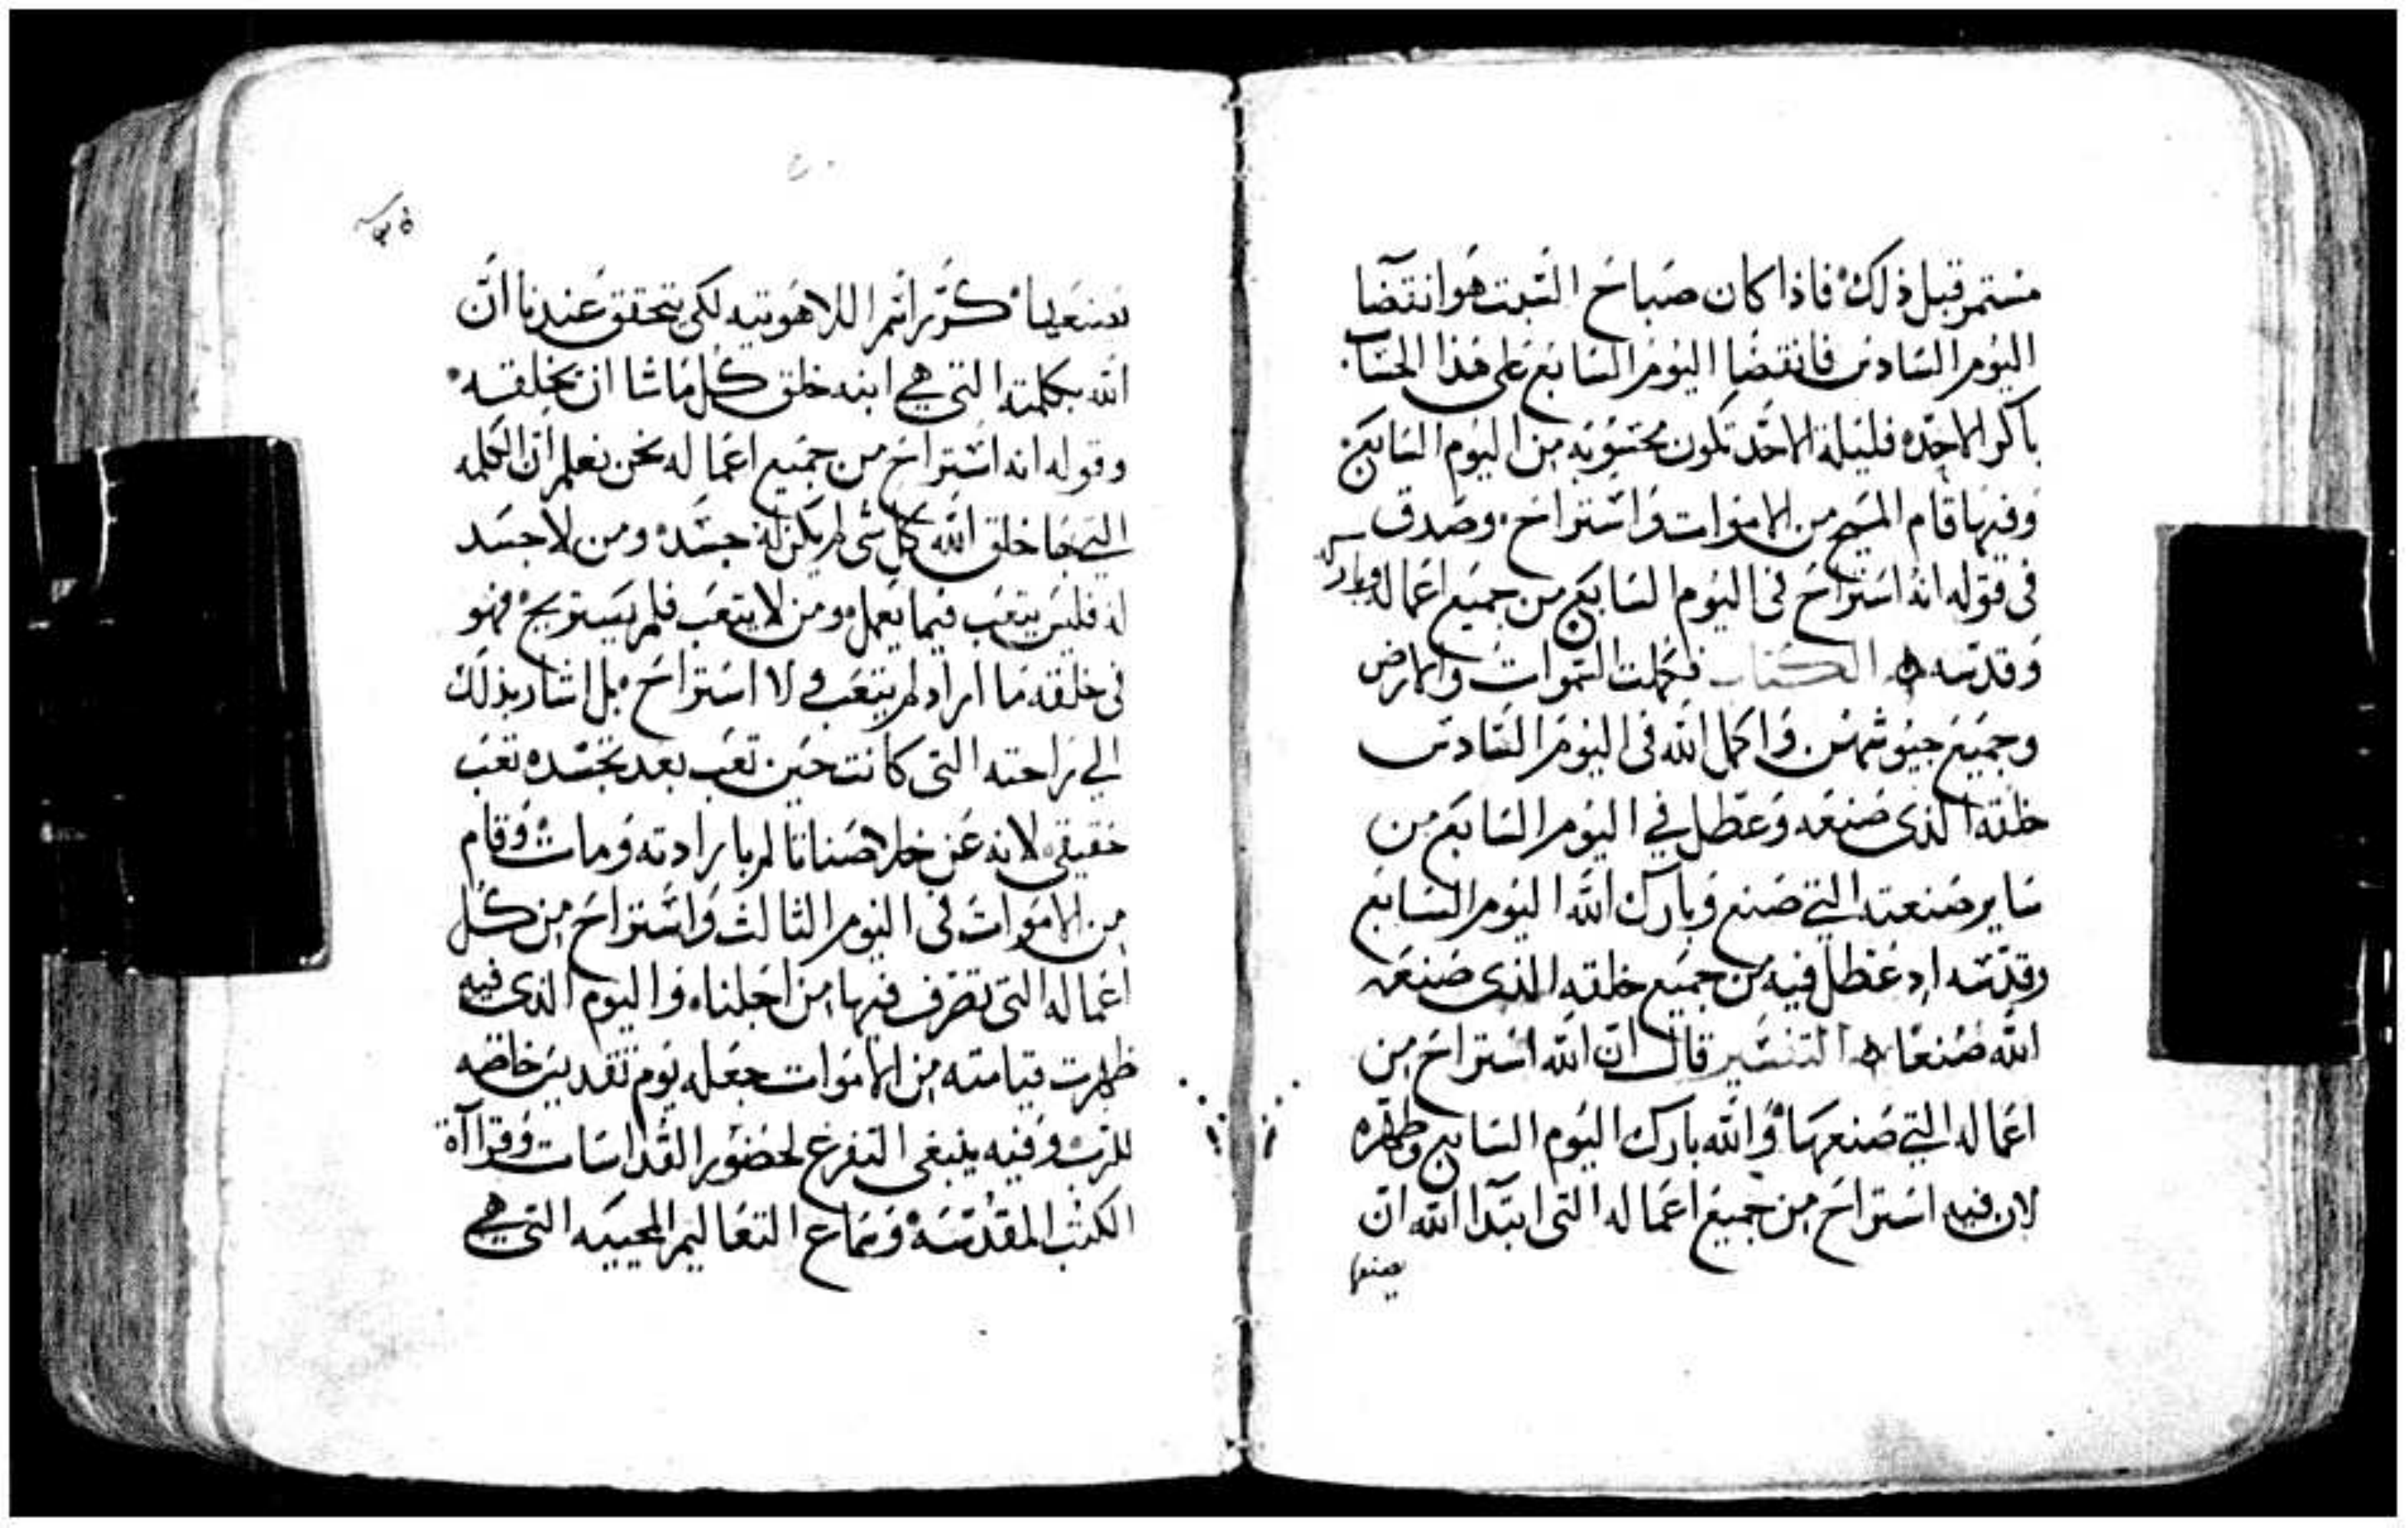 مستمر قبل ذلك فاذا كان صباح السبت هو انتضا
اليوم السادس فانقضا اليوم السابع على هذا الحساب
باكر الاحده فليلة الاحد تكون محسوبه من اليوم السابع
وفيها قام المسيح من الاموات واستراح. وصدق
فى قوله انه استراح فى اليوم السابع من جميع اعماله وباركه
وقدسه ه الكتاب فكملت السموات والارض
وجميع جيوشهن. واكمل الله فى اليوم السادس
خلقه الذى صنعه وعطل في اليوم السابع من
ساير صنعته التي صنع وبارك الله اليوم السابع
وقدسه اد عطل فيه من جميع خلقه الذى صنعه
الله صنعا ه التفسير قال ان الله استراح من
اعماله التي صنعها والله بارك اليوم السابع وطهره
لان فيه استراح من جميع اعماله التى ابتدا الله ان
يصنعها
يصنعها كرر اسم اللاهوتيه لكى يتحقق عندنا ان
الله بكلمته التى هي ابنه خلق كل ماشا ان يخلقه
وقوله انه استراح من جميع اعماله نحن نعلم ان الكلمه
التي بها خلق الله كل شى لم يكن له جسده ومن لا جسد
له فليس يتعب فيما يعمل ومن لا يتعب فلم يستريح فهو
فى خلقه ما اراد لم يتعب ولا استراح بل اشار بذلك
الي راحته التى كانت حين تعب بعد تجسده تعب
حقيقى لانه عن خلاصنا تالم بارادته ومات وقام
من الاموات فى اليوم الثالث واستراح من كل
اعماله التى تصرف فيها من اجلنا. واليوم الذى فيه
ظهرت قيامته من الاموات جعله يوم تقديس خاصه
للرب وفيه ينبغى التفرغ لحضور القداسات وقرااة
الكتب المقدسه وسماع التعاليم المحييه التى هي